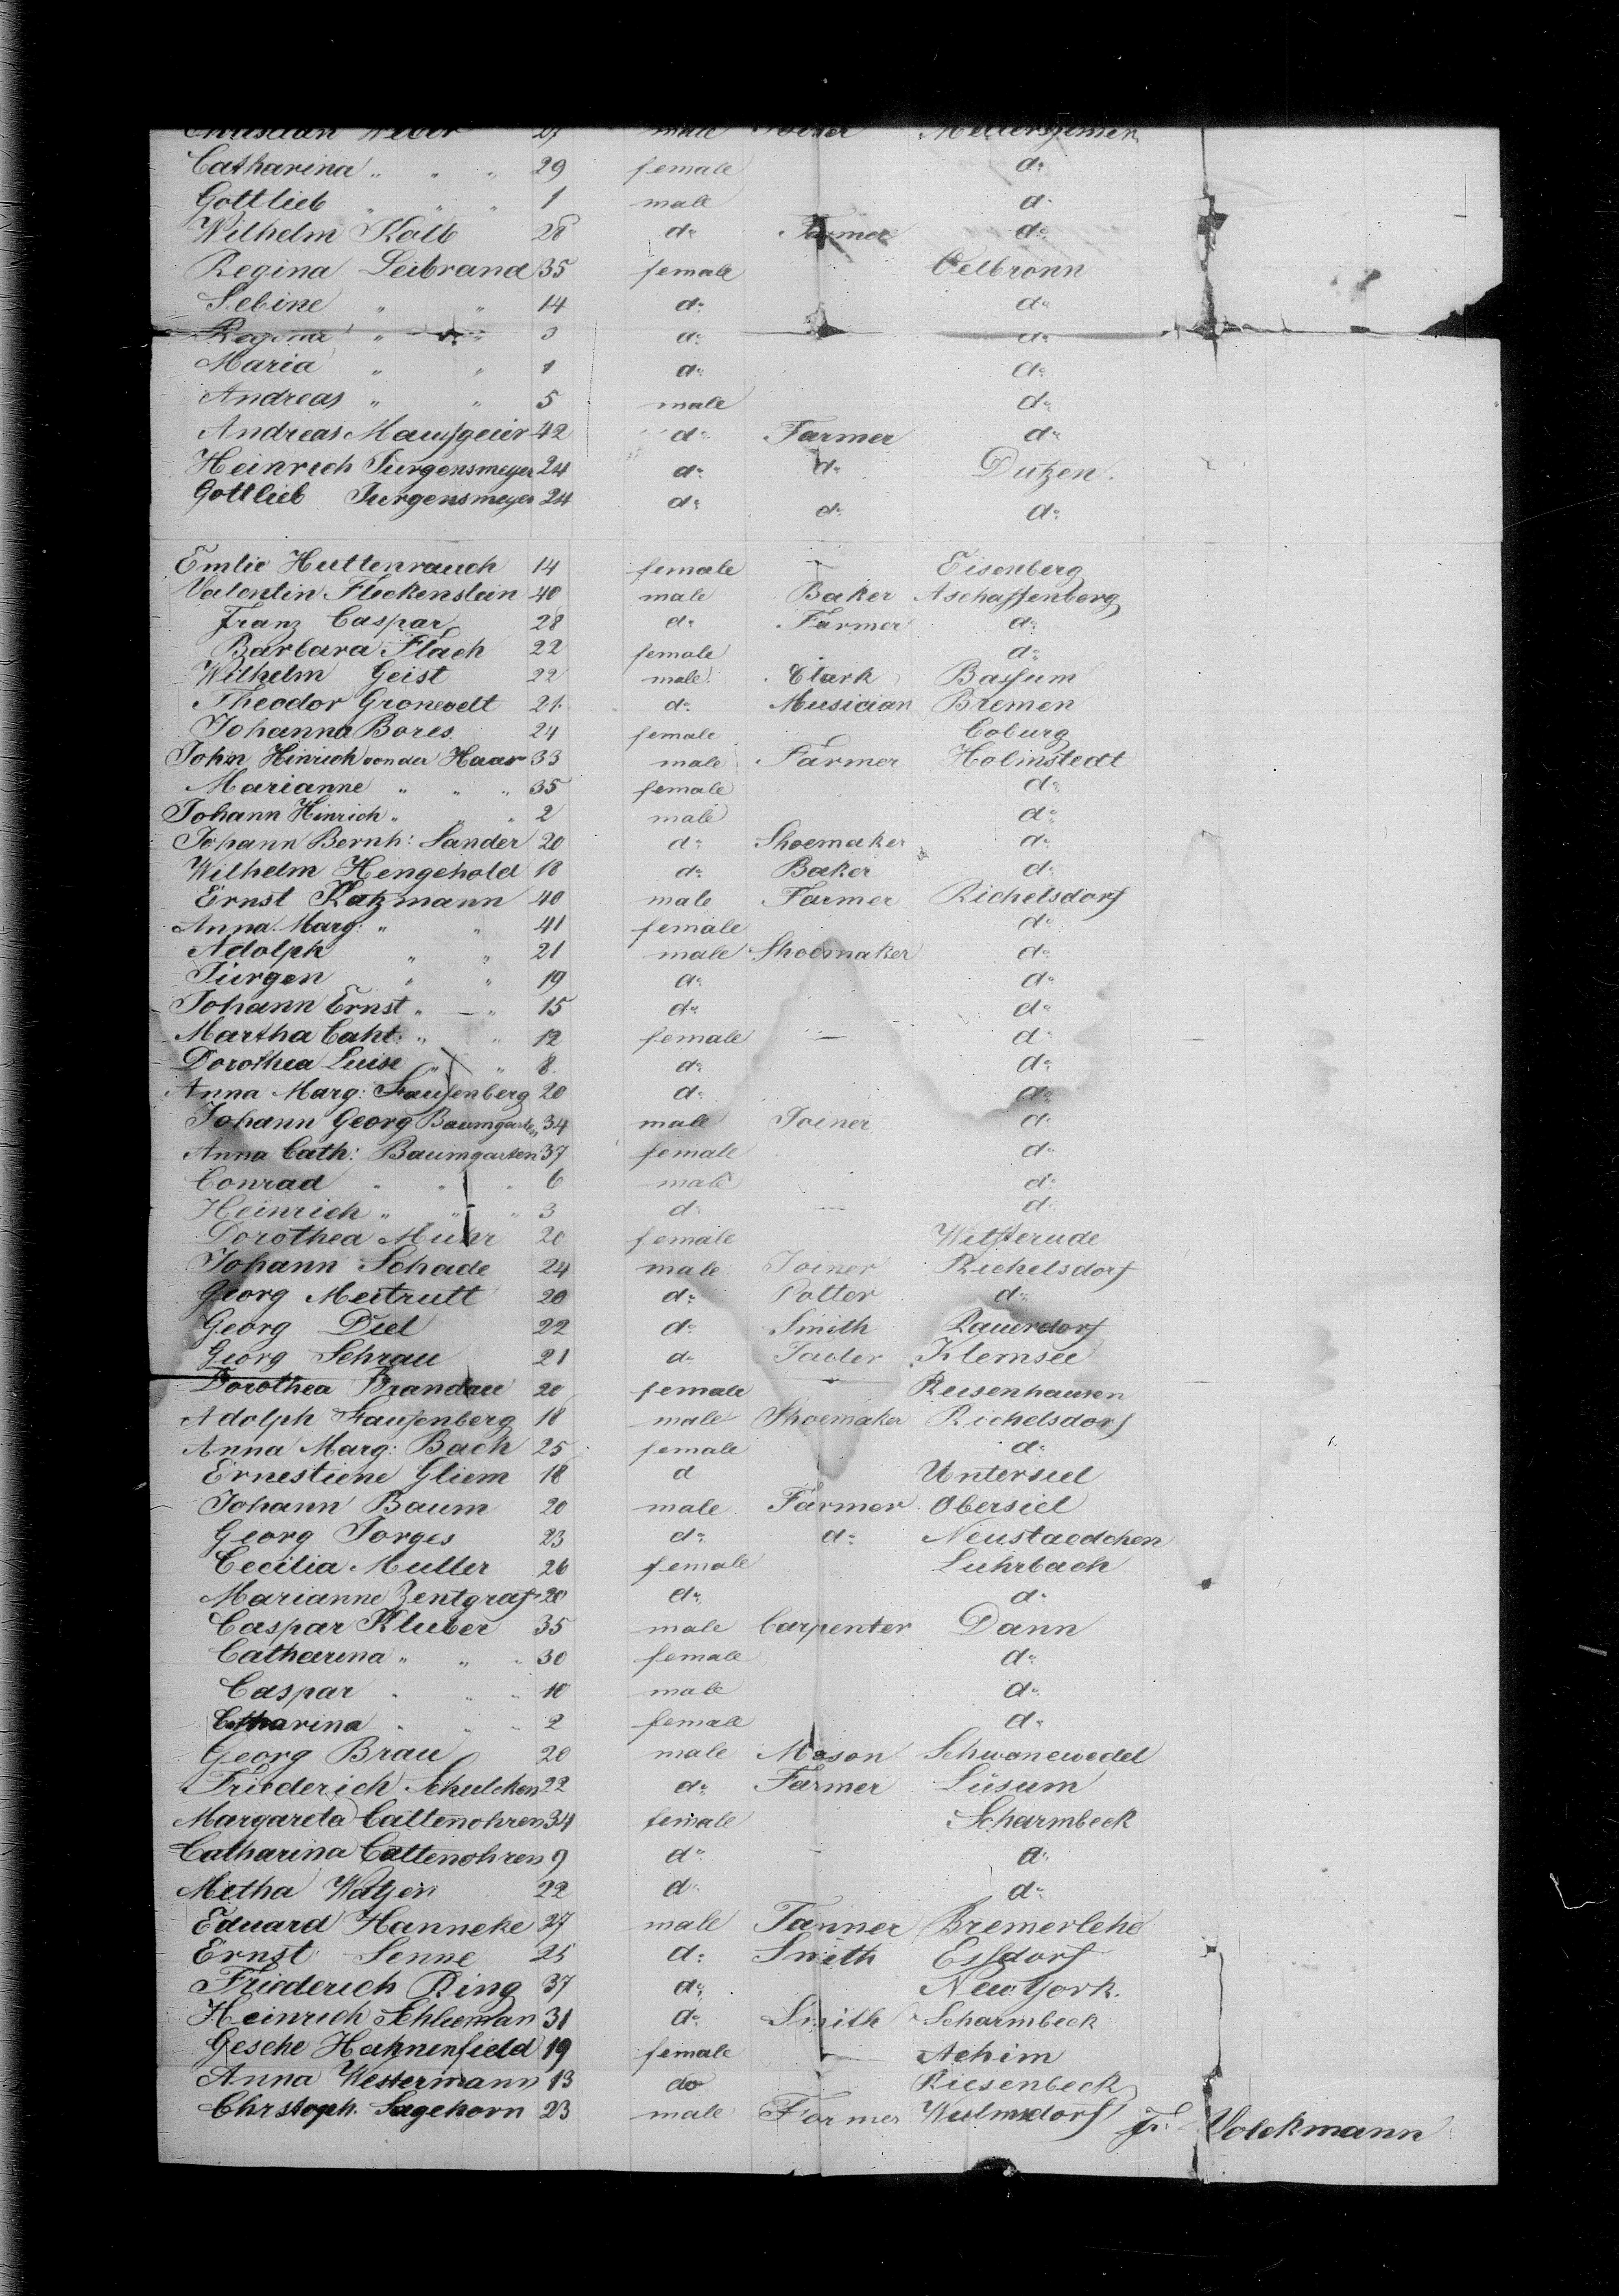 Christian Weber 27 male Joiner
Catharina " " " 29 female do
Gottlieb " " " 1 male do
Wilhelm Kolb 28 do Farmer do
Regina Leibrand 35 female Oelbronn
Sebine " " 14 do do
Regina " " do do
Maria " " 1 do do
Andreas " " 5 male do
Andreas Mausgeier 42 do Farmer do
Heinrich Jurgensmeyer 24 do do Dutzen.
Gottlieb Jurgensmeyer 24 do do do
Emlie Huttenrauch 14 female — Eisenberg
Valentin Fleckenstein 40 male Baker Aschaffenberg
Franz Caspar 28 do Farmer do
Barbara Flach 22 female do
Wilhelm Geist 22 male Clark Bassum
Theodor Gronevelt 21 do Musician Bremen
Johanna Bores 24 female Coburg
John Hinrich von der Haar 33 male Farmer Holmstedt
Marianne " " " 35 female do
Johann Hinrich " " 2 male do
Johann Bernh: Sander 20 do Shoemaker do
Wilhelm Hengehold 18 do Baker do
Ernst Katzmann 40 male Farmer Richelsdorf
Anna Marg: " " 41 female do
Adolph " " 21 male Shoemaker do
Jürgen " " 19 do do
Johann Ernst " — " 15 do do
Martha Caht: " " 12 female — do
Dorothea Luise " " 8 do do
Anna Marg: Faussenberg 20 do do
Johann Georg Baumgarten 34 male Joiner do
Anna Cath: Baumgarten 37 female do
Conrad " " " 6 male do
Heinrich " " " 3 do — do
Dorothea 20 female Witsterude
Johann Schade 24 male Joiner Richelsdorf
Georg Meitrutt 20 do Potter do
Georg Diel 22 do Smith Rauerdorf
Georg Schrau 21 do Tailer Klemsee
Dorothea Brandau 20 female — Reisenhausen
Adolph Faussenberg 18 male Shoemaker Richelsdorf
Anna Marg: Bach 25 female do
Ernestiene Gliem 18 d Untersuel
Johann Baum 20 male Farmer Obersiel
Georg Jorges 23 do do Neustaedchen
Cecilia Muller 26 female Luhrbach
Marianne Zentgraf 20 do do
Caspar Kluber 35 male Carpenter Dann
Catharina " " " 30 female do
Caspar " " " 10 male do
Catharina " " " 2 female do
Georg Brau 20 male Mason Schwanewedel
Friederich Schulcken 22 do Farmer Lüsum
Margareta Cattenohren 34 female Scharmbeck
Catharina Cattenohren 9 do do
Metha Watjen 22 do do
Eduard Hanneke 27 male Tanner Bremerlehe
Ernst Senne 25 do Smith Essdorf
Friederich Ring 37 do New York.
Heinrich Schlieman 31 do Smith Scharmbeck
Gesche Hahnenfield 19 female — Achim
Anna Westermann 13 do Riesenbeck
Chrstoph. Sagehorn 23 male Farmer Wulmsdorf
Fr. Volckmann